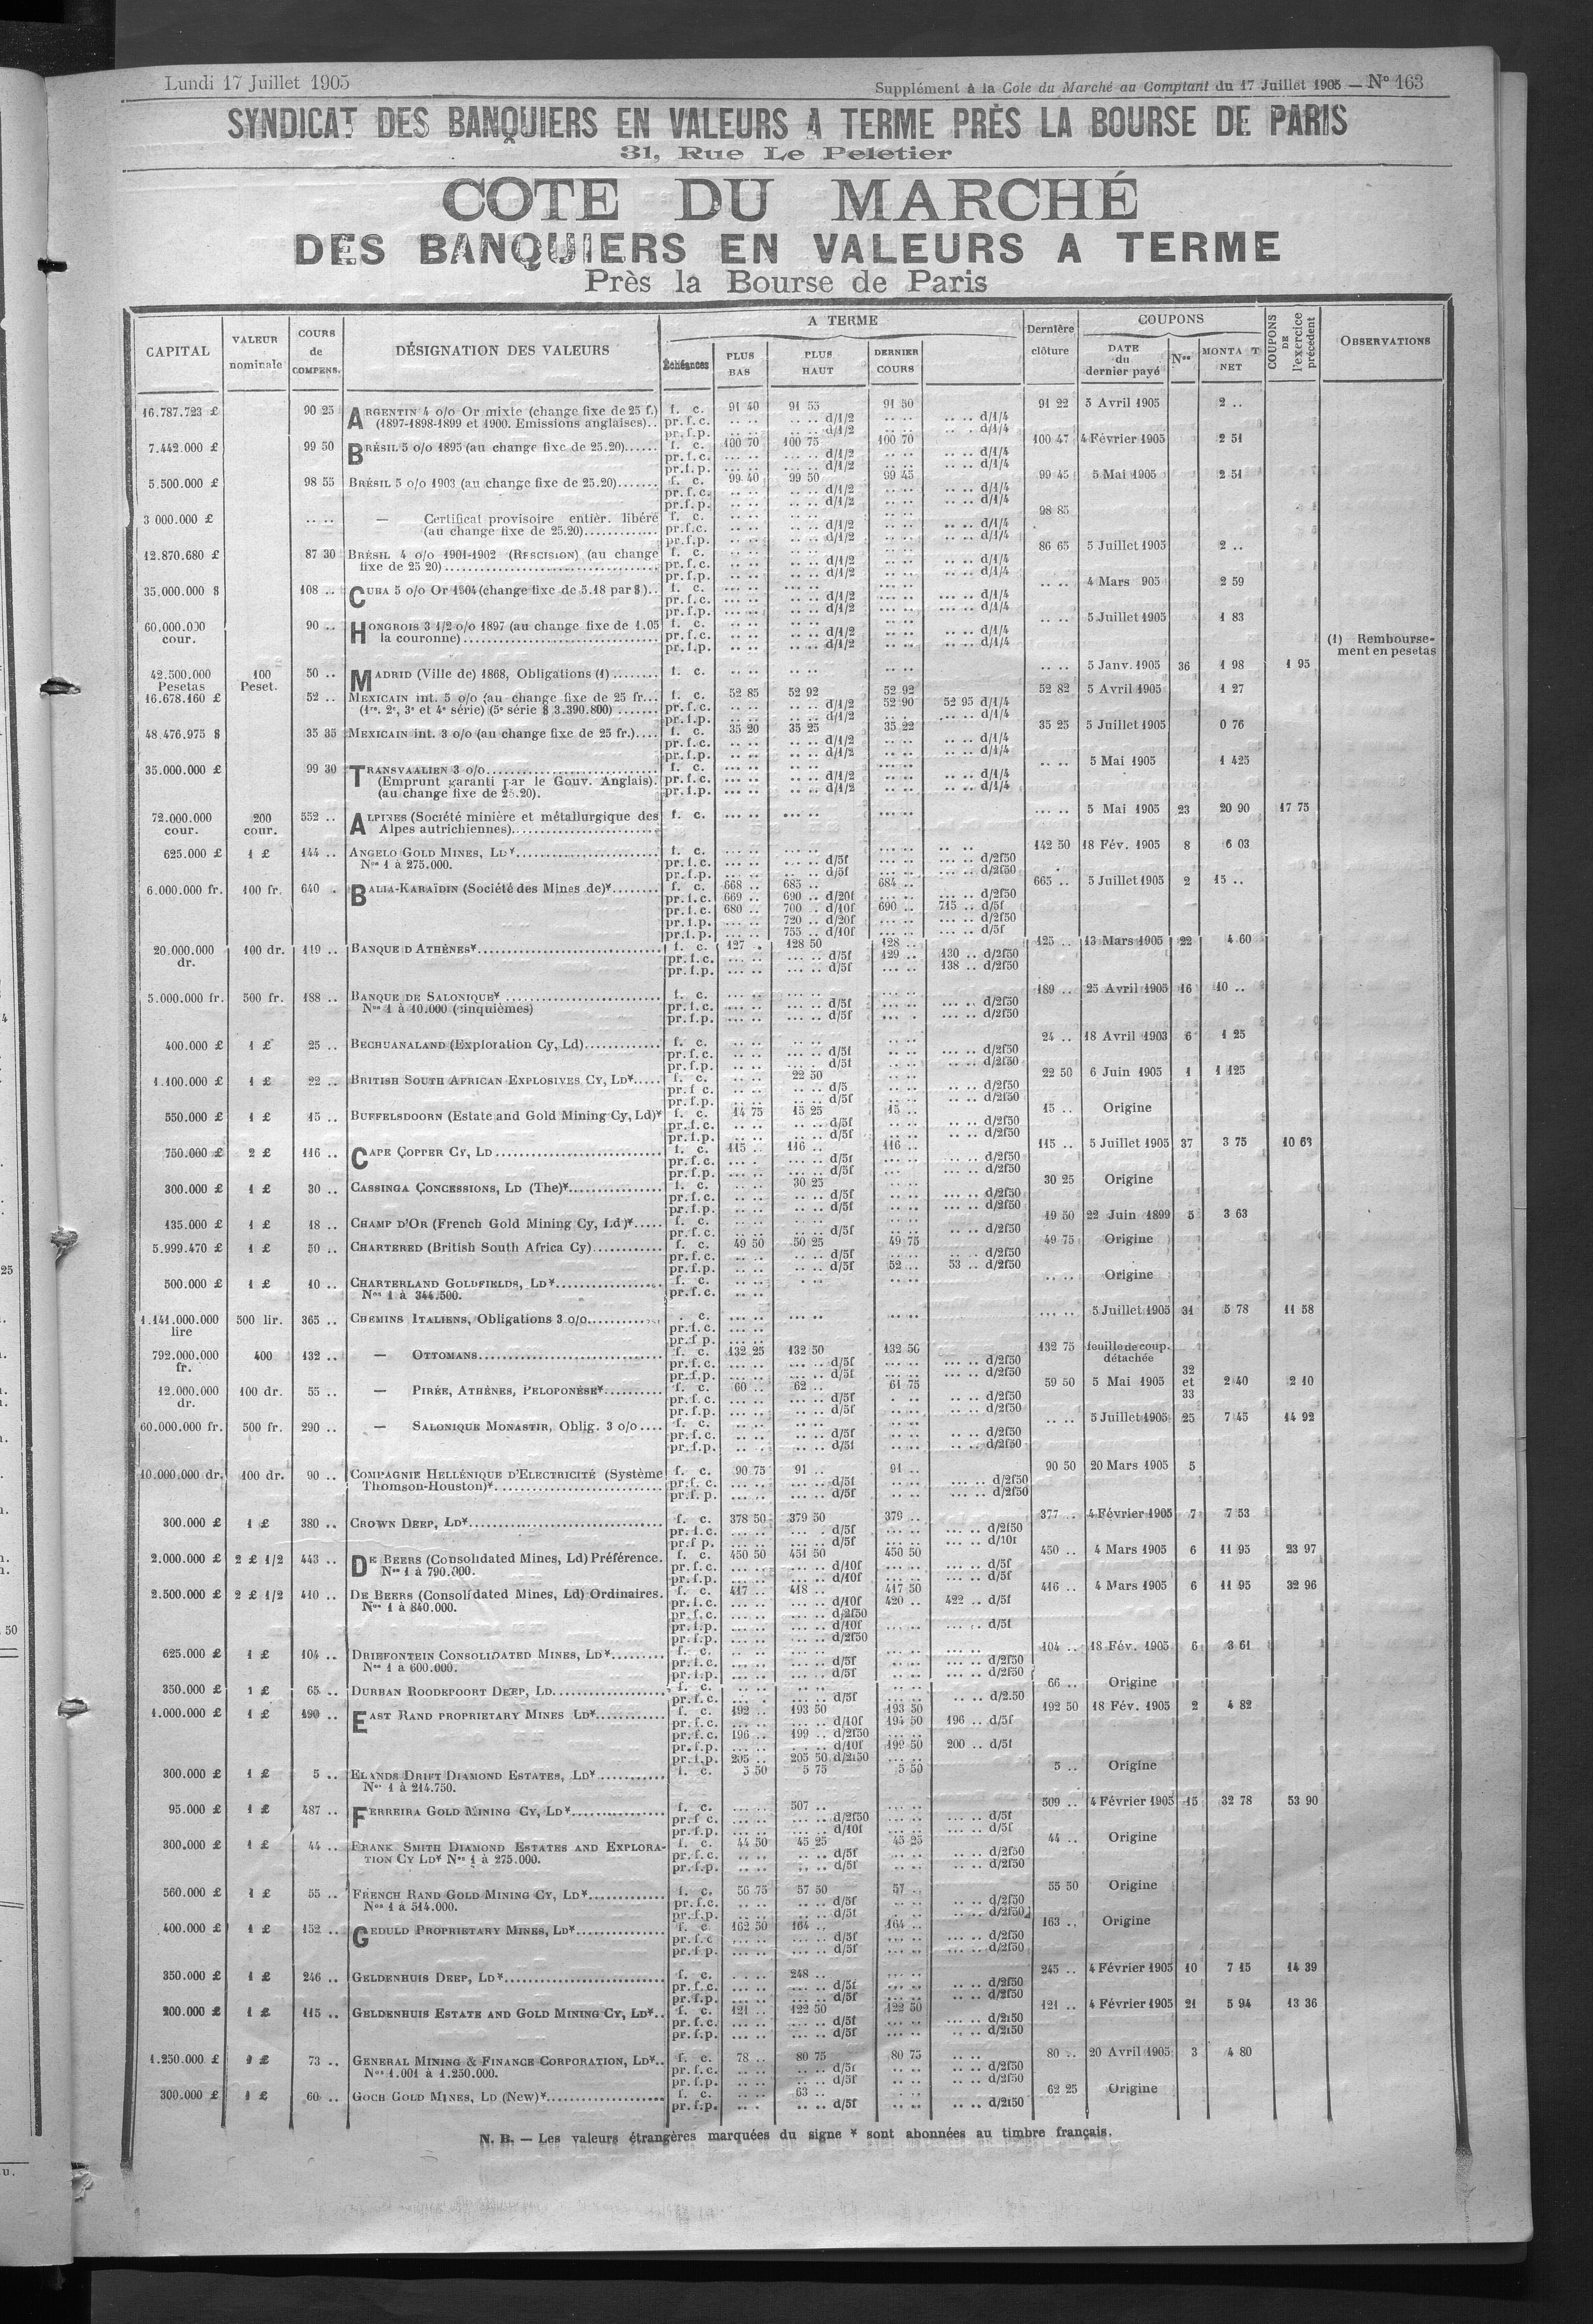 Lundi 17 Juillet 1905
Supplément à la Cote du Marché au Comptant du 17 Juillet 1905 — N° 163
SYNDICAT DES BANQUIERS EN VALEURS A TERME PRÈS LA BOURSE DE PARIS
31, Rue Le Peletier
COTE DU MARCHÉ
DES BANQUIERS EN VALEURS A TERME
Près la Bourse de Paris
CAPITAL VALEUR nominale COURS de COMPENS. DÉSIGNATION DES VALEURS A TERME Échéances PLUS BAS PLUS HAUT DERNIER COURS Dernière clôture COUPONS DATE du dernier payé Nos MONTA T NET COUPONS DE l'exercice précédent OBSERVATIONS
16.787.723 £ 90 25 ARGENTIN 4 o/o Or mixte (change fixe de 25 f.) f. c. 91 40 91 55 91 50 91 22 5 Avril 1905 2 ..
(1897-1898-1899 et 1900. Emissions anglaises).. pr. f. c. .. .. .. .. d/1/2 .. .. .. .. d/1/4
pr. f. p. .. .. .. .. d/1/2 .. .. .. .. d/1/4
7.442.000 £ 99 50 BRÉSIL 5 o/o 1895 (au change fixe de 25.20)...... f. c. 100 70 100 75 100 70 100 47 4 Février 1905 2 51
pr. f. c. ... .. ... .. d/1/2 .. .. .. .. d/1/4
pr. f. p. ... .. ... .. d/1/2 .. .. .. .. d/1/4
5.500.000 £ 98 55 BRÉSIL 5 o/o 1903 (au change fixe de 25.20)....... f. c. 99 40 99 50 99 45 99 45 5 Mai 1905 2 51
pr. f. c. .. .. .. .. d/1/2 .. .. .. .. d/1/4
pr. f. p. .. .. .. .. d/1/2 .. .. .. .. d/1/4
3 000.000 £ .. .. — Certificat provisoire entièr. libéré f. c. .. .. .. .. .. .. 98 85
(au change fixe de 25.20)............ pr. f. c. .. .. .. .. d/1/2 .. .. .. .. d/1/4
pr. f. p. .. .. .. .. d/1/2 .. .. .. .. d/1/4
12.870.680 £ 87 30 BRÉSIL 4 o/o 1901-1902 (RESCISION) (au change f. c. .. .. .. .. .. .. 86 65 5 Juillet 1905 2 ..
fixe de 25 20)................................. pr. f. c. .. .. .. .. d/1/2 .. .. .. .. d/1/4
pr. f. p. .. .. .. .. d/1/2 .. .. .. .. d/1/4
35.000.000 $ 108 .. CUBA 5 o/o Or 1904 (change fixe de 5.18 par $).. f. c. ... .. ... .. ... .. .. .. 4 Mars 905 2 59
pr. f. c. ... .. ... .. d/1/2 ... .. ... .. d/1/4
pr. f. p. ... .. ... .. d/1/2 ... .. ... .. d/1/4
60.000.000 cour. 90 .. HONGROIS 3 1/2 o/o 1897 (au change fixe de 1.05 f. c. .. .. .. .. .. .. .. .. 5 Juillet 1905 1 83
la couronne)................................ pr. f. c. .. .. .. .. d/1/2 .. .. .. .. d/1/4
pr. f. p. .. .. .. .. d/1/2 .. .. .. .. d/1/4
(1) Rembourse-
ment en pesetas
42.500.000 Pesetas 100 Peset. 50 .. MADRID (Ville de) 1868, Obligations (1)........ f. c. .. .. .. .. .. .. .. .. 5 Janv. 1905 36 1 98 1 95
16.678.160 £ 52 .. MEXICAIN int. 5 o/o (au change fixe de 25 fr... f. c. 52 85 52 92 52 92 52 82 5 Avril 1905 1 27
(1re, 2e, 3e et 4e série) (5e série $ 3.390.800)....... pr. f. c. .. .. .. .. d/1/2 52 90 52 95 d/1/4
pr. f. p. .. .. .. .. d/1/2 .. .. .. .. d/1/4
48.476.975 $ 35 35 MEXICAIN int. 3 o/o (au change fixe de 25 fr.).... f. c. 35 20 35 25 35 22 35 25 5 Juillet 1905 0 76
pr. f. c. .. .. .. .. d/1/2 .. .. .. .. d/1/4
pr. f. p. .. .. .. .. d/1/2 .. .. .. .. d/1/4
35.000.000 £ 99 30 TRANSVAALIEN 3 o/o............................ f. c. ... .. ... .. .. .. .. .. 5 Mai 1905 1 425
(Emprunt garanti par le Gouv. Anglais). pr. f. c. ... .. ... .. d/1/2 .. .. .. .. d/1/4
(au change fixe de 25.20). pr. f. p. ... .. ... .. d/1/2 .. .. .. .. d/1/4
72.000.000 cour. 200 cour. 552 .. ALPINES (Société minière et métallurgique des f. c. ... .. ... .. ... .. ... .. 5 Mai 1905 23 20 90 17 75
Alpes autrichiennes)........................
625.000 £ 1 £ 144 .. ANGELO GOLD MINES, LD*........................ f. c. ... .. ... .. ... .. 142 50 18 Fév. 1905 8 6 03
Nos 1 à 275.000. pr. f. c. ... .. ... .. d/5f ... .. ... .. d/2f50
pr. f. p. ... .. ... .. d/5f ... .. ... .. d/2f50
6.000.000 fr. 100 fr. 640 . BALIA-KARAÏDIN (Société des Mines de)*........ f. c. 668 .. 685 .. 684 .. 665 .. 5 Juillet 1905 2 15 ..
pr. f. c. 669 .. 690 .. d/20f ... .. ... .. d/2f50
pr. f. c. 680 .. 700 .. d/10f 690 .. 715 .. d/5f
pr. f. p. ... .. 720 .. d/20f ... .. ... .. d/2f50
pr. f. p. ... .. 755 .. d/10f ... .. ... .. d/5f
20.000.000 dr. 100 dr. 119 .. BANQUE D ATHÈNES*.............................. f. c. 127 . 128 50 128 .. 125 .. 13 Mars 1905 22 4 60
pr. f. c. ... .. ... .. d/5f 129 .. 130 .. d/2f50
pr. f. p. ... .. ... .. d/5f ... .. 138 .. d/2f50
5.000.000 fr. 500 fr. 188 .. BANQUE DE SALONIQUE*.......................... f. c. ... .. ... .. ... .. 189 .. 25 Avril 1905 16 10 ..
Nos 1 à 10.000 (cinquièmes) pr. f. c. ... .. ... .. d/5f ... .. ... .. d/2f50
pr. f. p. ... .. ... .. d/5f ... . ... .. d/2f50
400.000 £ 1 £ 25 .. BECHUANALAND (Exploration Cy, Ld)............. f. c. .. .. .. .. .. .. 24 .. 18 Avril 1903 6 1 25
pr. f. c. .. .. ... .. d/5f .. .. ... .. d/2f50
pr. f. p. .. .. ... .. d/5f .. .. ... .. d/2f50
1.100.000 £ 1 £ 22 .. BRITISH SOUTH AFRICAN EXPLOSIVES CY, LD*..... f. c. .. .. 22 50 .. .. 22 50 6 Juin 1905 1 1 125
pr. f c. .. .. .. .. d/5 .. .. .. .. d/2f50
pr. f. p. .. .. .. .. d/5f .. .. .. .. d/2f50
550.000 £ 1 £ 15 .. BUFFELSDOORN (Estate and Gold Mining Cy, Ld)* f. c. 14 75 15 25 15 .. 15 .. Origine
pr. f. c. .. .. .. .. d/5f .. .. .. .. d/2f50
pr. f. p. .. .. .. .. d/5f .. .. .. .. d/2f50
750.000 £ 2 £ 116 .. CAPE COPPER CY, LD............................ f. c. 115 .. 116 .. 116 .. 115 .. 5 Juillet 1905 37 3 75 10 63
pr. f. c. ... . ... .. d/5f ... .. ... .. d/2f50
pr. f. p. ... .. ... .. d/5f ... .. ... .. d/2f50
300.000 £ 1 £ 30 .. CASSINGA CONCESSIONS, LD (The)*................ f. c. .. .. 30 25 .. .. 30 25 Origine
pr. f. c. .. .. .. .. d/5f .. .. ... .. d/2f50
pr. f. p. .. .. .. .. d/5f .. .. ... .. d/2f50
135.000 £ 1 £ 18 .. CHAMP D'OR (French Gold Mining Cy, Ld)*..... f. c. .. .. .. .. .. .. 19 50 22 Juin 1899 5 3 63
pr. f. c. .. .. .. .. d/5f .. .. ... .. d/2f50
5.999.470 £ 1 £ 50 .. CHARTERED (British South Africa Cy)............ f. c. 49 50 50 25 49 75 49 75 Origine
pr. f. c. .. .. .. .. d/5f .. .. .. .. d/2f50
pr. f. p. .. .. .. .. d/5f 52 .. 53 .. d/2f50
500.000 £ 1 £ 10 .. CHARTERLAND GOLDFIELDS, LD*................. f. c. .. .. .. .. .. .. .. .. Origine
Nos 1 à 344.500. pr. f. c. .. ..
1.141.000.000 lire 500 lir. 365 .. CHEMINS ITALIENS, Obligations 3 o/o............ . c. ... .. ... .. ... .. ... .. 5 Juillet 1905 31 5 78 11 58
pr. f. c. ... ..
pr. f p. ... ..
792.000.000 fr. 400 132 .. — OTTOMANS.............................. f. c. 132 25 132 50 132 50 132 75 feuille de coup. détachée
pr. f. c. ... .. ... .. d/5f ... .. ... .. d/2f50
pr. f. p. ... .. ... .. d/5f ... .. ... .. d/2f50
12.000.000 dr. 100 dr. 55 .. — PIRÉE, ATHÈNES, PELOPONÈSE*.......... f. c. 60 .. 62 .. 61 75 59 50 5 Mai 1905 32 et 33 2 40 2 10
pr. f. c. .. .. .. .. d/5f .. .. .. .. d/2f50
pr. f. p. .. .. .. .. d/5f .. .. .. .. d/2f50
60.000.000 fr. 500 fr. 290 .. — SALONIQUE MONASTIR, Oblig. 3 o/o.... f. c. .. .. .. .. .. .. .. .. 5 Juillet 1905 25 7 45 14 92
pr. f. c. .. .. .. .. d/5f .. .. .. .. d/2f50
pr. f. p. .. .. .. .. d/5f .. .. .. .. d/2f50
10.000.000 dr. 100 dr. 90 .. COMPAGNIE HELLÉNIQUE D'ELECTRICITÉ (Système f. c. 90 75 91 .. 91 .. 90 50 20 Mars 1905 5
Thomson-Houston)*........................... pr. f. c. ... .. ... .. d/5f .. .. ... .. d/2f50
pr. f. p. ... .. ... .. d/5f .. .. ... .. d/2f50
300.000 £ 1 £ 380 .. CROWN DEEP, LD*............................... f. c. 378 50 379 50 379 .. 377 .. 4 Février 1905 7 7 53
pr. f. c. ... .. ... . d/5f ... .. ... .. d/2f50
pr. f p. ... .. ... .. d/5f ... .. ... .. d/10f
2.000.000 £ 2 £ 1/2 443 .. DE BEERS (Consolidated Mines, Ld) Préférence. f. c. 450 50 451 50 450 50 450 .. 4 Mars 1905 6 11 95 23 97
Nos 1 à 790.000. pr. f. c. ... .. ... .. d/10f ... .. ... .. d/5f
pr. f. p. ... .. ... .. d/10f ... .. ... .. d/5f
2.500.000 £ 2 £ 1/2 410 .. DE BEERS (Consolidated Mines, Ld) Ordinaires. f. c. 417 .. 418 .. 417 50 416 .. 4 Mars 1905 6 11 95 32 96
Nos 1 à 840.000. pr. f. c. ... .. ... .. d/10f 420 .. 422 .. d/5f
pr. f. c. ... .. ... .. d/2f50
pr. f. p. ... .. ... .. d/10f ... .. ... .. d/5f
pr. f. p. ... .. ... .. d/2f50
625.000 £ 1 £ 104 .. DRIEFONTEIN CONSOLIDATED MINES, LD*......... f. c. ... .. ... .. ... .. 104 .. 18 Fév. 1905 6 3 61
Nos 1 à 600.000. pr. f. c. ... .. ... .. d/5f ... .. ... .. d/2f50
pr. f. p. ... .. ... .. d/5f ... .. ... .. d/2f50
350.000 £ 1 £ 65 .. DURBAN ROODEPOORT DEEP, LD................... f. c. .. .. .. .. .. .. 66 .. Origine
pr. f. c. ... . ... .. d/5f ... .. .. .. d/2.50
1.000.000 £ 1 £ 190 .. EAST RAND PROPRIETARY MINES LD*............ f. c. 192 .. 193 50 193 50 192 50 18 Fév. 1905 2 4 82
pr. f. c. ... .. ... .. d/10f 194 50 196 .. d/5f
pr. f. c. 196 .. 199 .. d/2f50 ... ..
pr. f. p. ... .. ... .. d/10f 199 50 200 .. d/5f
pr. f. p. 205 .. 205 50 d/2f50 ... ..
300.000 £ 1 £ 5 .. ELANDS DRIFT DIAMOND ESTATES, LD*........... f. c. 5 50 5 75 5 50 5 .. Origine
Nos 1 à 214.750.
95.000 £ 1 £ 487 .. FERREIRA GOLD MINING CY, LD*................ f. c. ... .. 507 .. ... .. 509 .. 4 Février 1905 15 32 78 53 90
pr. f c. ... .. ... .. d/2f50 ... .. ... .. d/5f
pr. f. p. ... .. ... .. d/10f ... .. ... .. d/5f
300.000 £ 1 £ 44 .. FRANK SMITH DIAMOND ESTATES AND EXPLORA- f. c. 44 50 45 25 45 25 44 .. Origine
TION CY LD* Nos 1 à 275.000. pr. f. c. .. .. .. .. d/5f .. .. .. .. d/2f50
pr. f. p. .. .. .. .. d/5f .. .. .. .. d/2f50
560.000 £ 1 £ 55 .. FRENCH RAND GOLD MINING CY, LD*............. f. c. 56 75 57 50 57 .. 55 50 Origine
Nos 1 à 514.000. pr. f. c. .. .. .. .. d/5f .. .. .. .. d/2f50
pr. f. p. .. .. .. .. d/5f .. .. .. .. d/2f50
400.000 £ 1 £ 152 .. GEDULD PROPRIETARY MINES, LD*............... f. c. 162 50 164 .. 164 .. 163 .. Origine
pr. f. c ... .. ... .. d/5f ... .. ... .. d/2f50
pr. f. p. ... .. ... .. d/5f ... .. ... .. d/2f50
350.000 £ 1 £ 246 .. GELDENHUIS DEEP, LD*.......................... f. c. ... .. 248 .. ... .. 245 .. 4 Février 1905 10 7 15 14 39
pr. f. c. ... .. ... .. d/5f ... .. .. .. d/2f50
pr. f. p. ... .. ... .. d/5f ... .. .. .. d/2f50
200.000 £ 1 £ 115 .. GELDENHUIS ESTATE AND GOLD MINING CY, LD*.. f. c. 121 .. 122 50 122 50 121 .. 4 Février 1905 21 5 94 13 36
pr. f. c. ... .. ... .. d/5f ... .. ... .. d/2f50
pr. f. p. ... .. ... .. d/5f ... .. .. .. d/2f50
1.250.000 £ 1 £ 73 .. GENERAL MINING & FINANCE CORPORATION, LD*.. f. c. 78 .. 80 75 80 75 80 .. 20 Avril 1905 3 4 80
Nos 1.001 à 1.250.000. pr. f. c. .. .. .. .. d/5f .. .. .. .. d/2f50
pr. f. p. .. .. .. .. d/5f .. .. .. .. d/2f50
300.000 £ 1 £ 60 .. GOCH GOLD MINES, LD (New)*................... f. c. .. .. 63 .. .. .. 62 25 Origine
pr. f. p. .. . .. .. d/5f .. .. .. .. d/2f50
N. B. — Les valeurs étrangères marquées du signe * sont abonnées au timbre français.